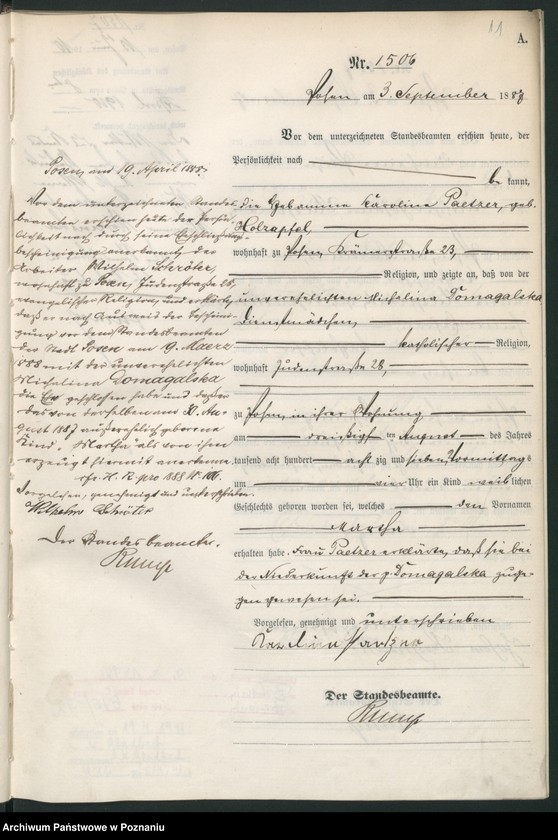 11
A.
Nr. 1506
Posen am 3. September 1887
Vor dem unterzeichneten Standesbeamten erschien heute, der
Persönlichkeit nach
be kannt,
die Hebamme Karoline Paetzer, geb.
Holzapfel,
wohnhaft zu Posen, Krämerstraße 23,
Religion, und zeigte an, daß von der
unverehelichten Michalina Domagalska
Dienstmädchen,
katholischer Religion,
wohnhaft Judenstraße 28,
zu Posen, in ihrer Wohnung
am dreißigsten August des Jahres
tausend acht hundert acht zig und sieben, Vormittags
um vier Uhr ein Kind weiblichen
Geschlechts geboren worden sei, welches den Vornamen
Martha
erhalten habe. Frau Paetzer erklärte, daß sie bei
der Niederkunft der p. Domagalska zuge-
gen gewesen sei.
Vorgelesen, genehmigt und unterschrieben
Karoline Paetzer
Der Standesbeamte.
Rump
Posen, am 19. April 1888
Vor dem unterzeichneten Standes-
beamten erschien heute der Persön-
lichkeit nach durch seine Eheschließungs-
bescheinigung anerkannt, der
Arbeiter Wilhelm Schröter,
wohnhaft zu Posen, Judenstraße 28,
evangelischer Religion, und erklärte,
daß er nach Ausweis der Eheschließ-
ung vor dem Standesbeamten
der Stadt Posen am 9. Maerz
1888 mit der unverehelichten
Michalina Domagalska
die Ehe geschlossen habe und daß er
das von derselben am 30. Au-
gust 1887 außerehelich geborene
Kind "Martha" als von ihm
erzeugt hiermit anerkenne.
H. R. pro 1888 N.
Vorgelesen, genehmigt und unterschrieben.
Wilhelm Schröter
Der Standesbeamte.
Rump
Archiwum Państwowe w Poznaniu